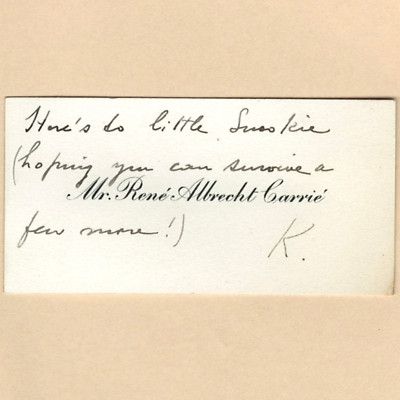 Here's to little Smokie
(hoping you can survive a
Mr. René Albrecht Carrié
few more!)
K.